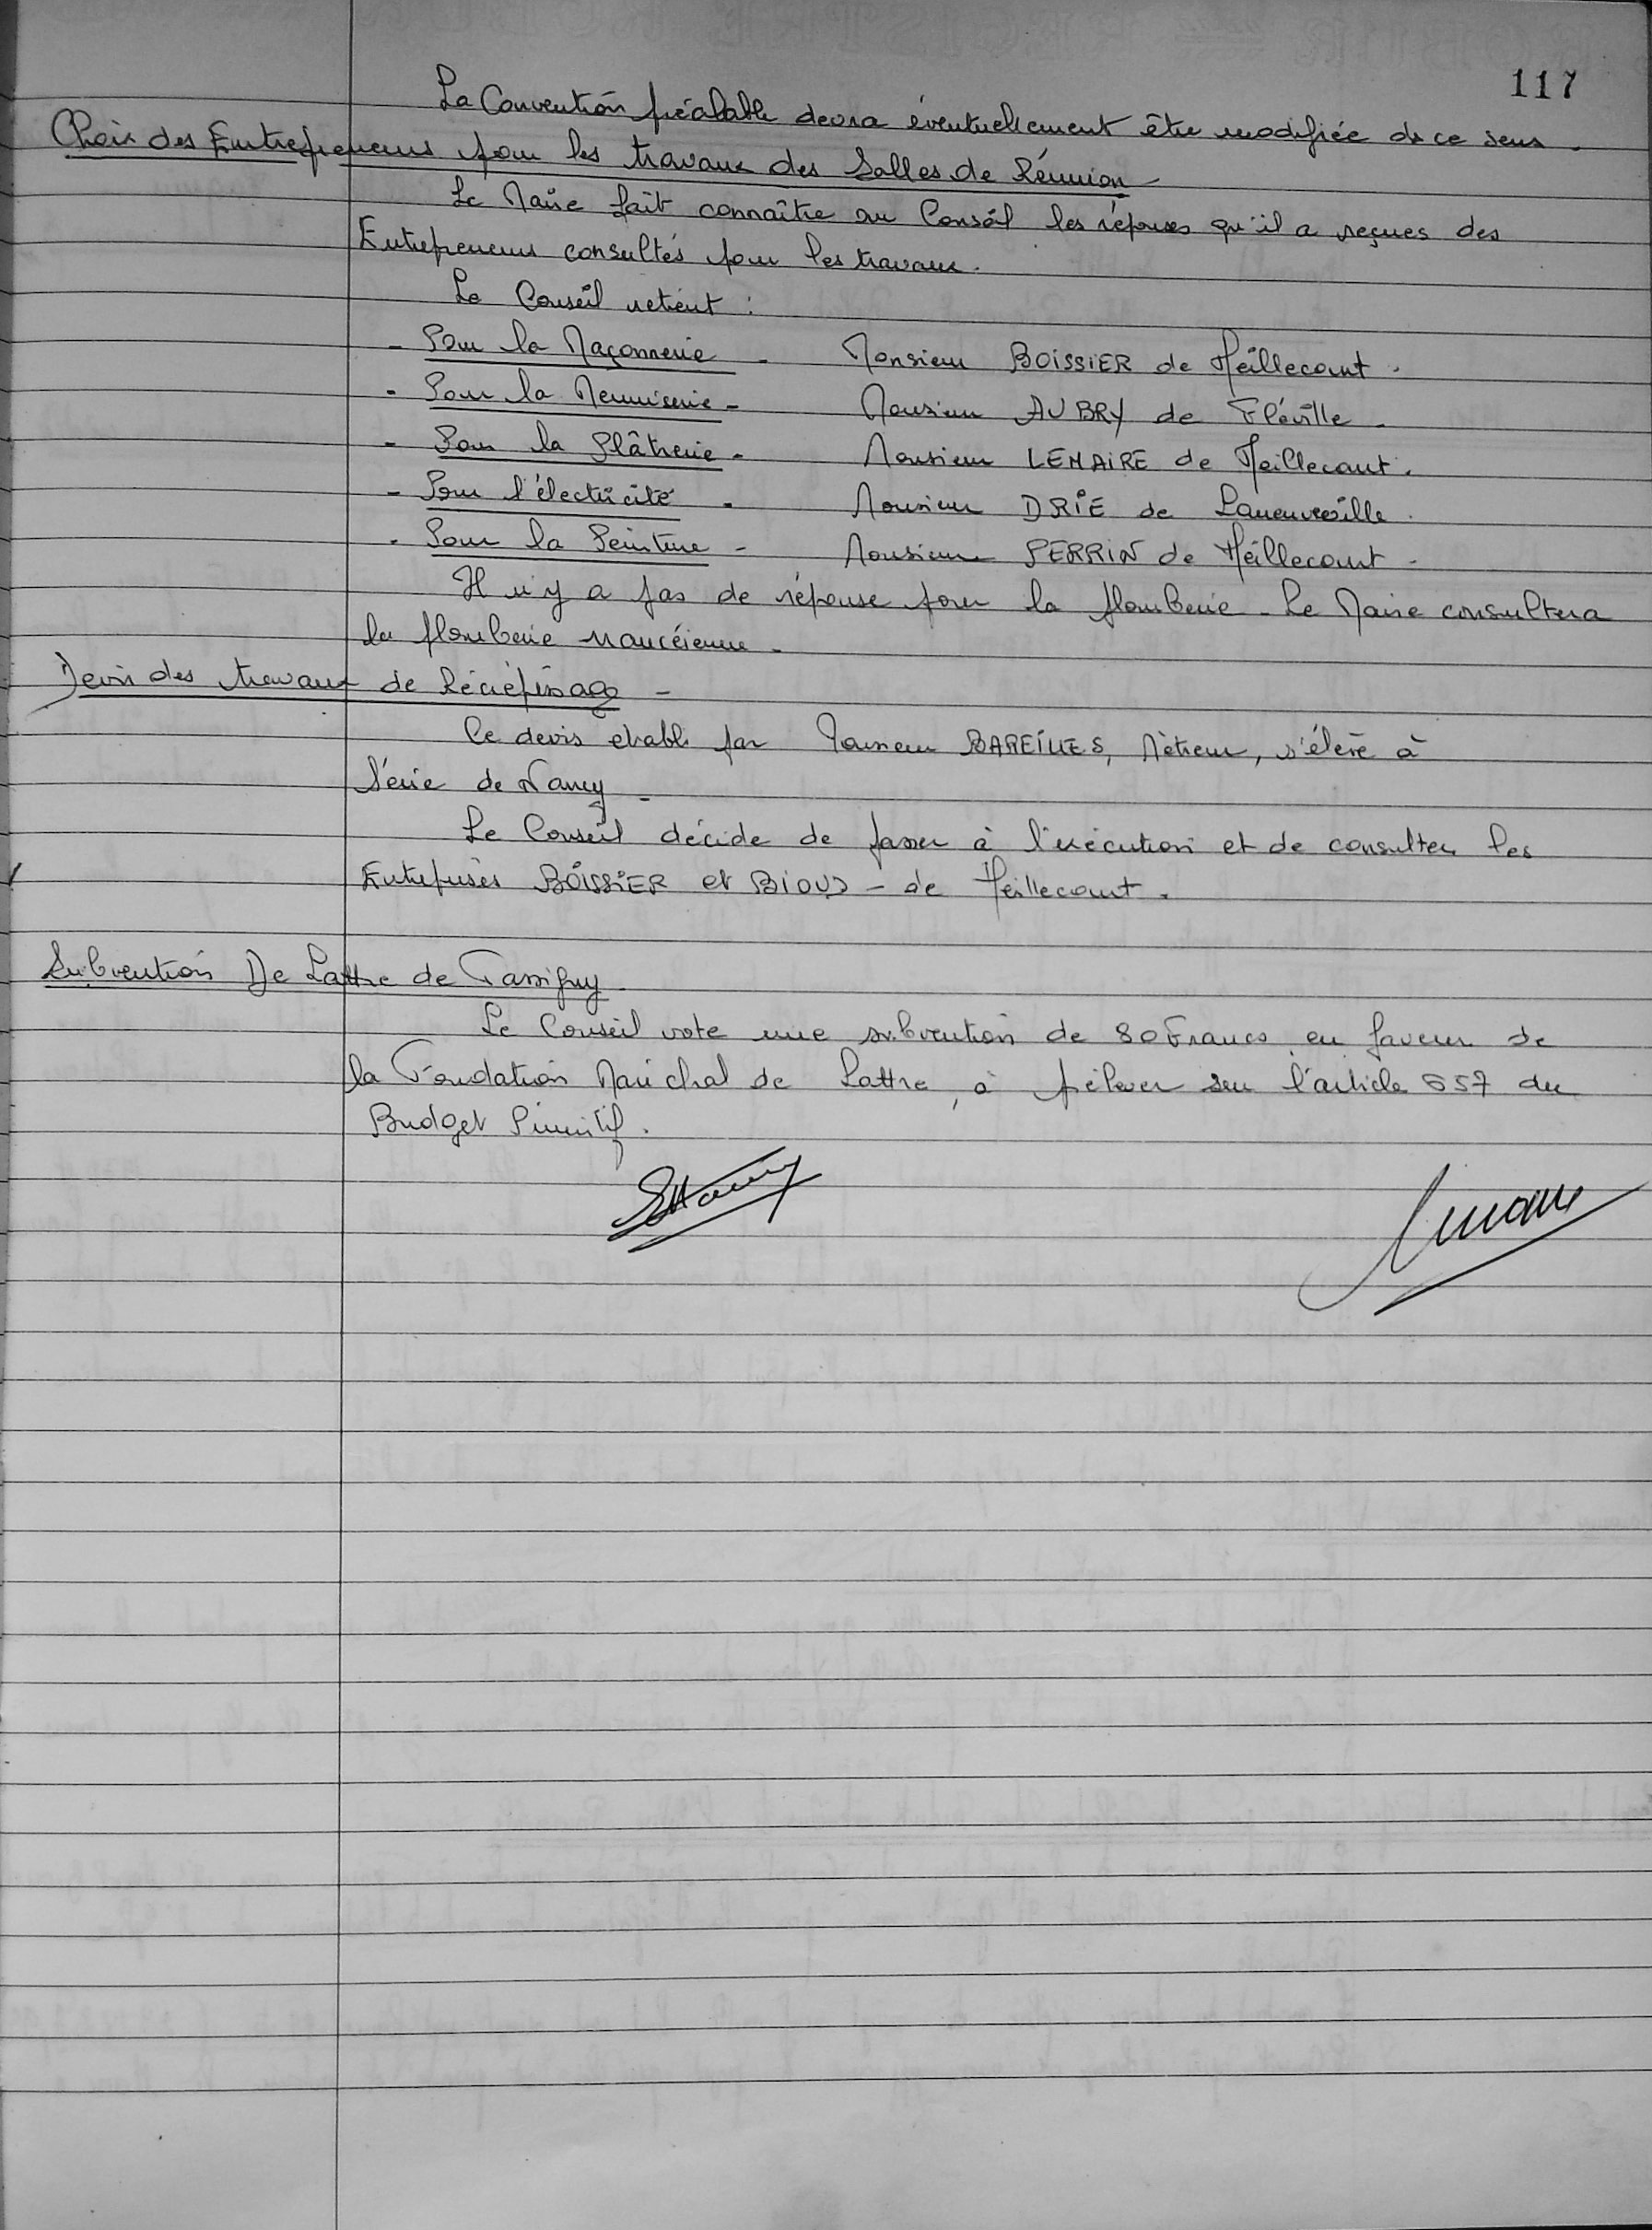 117
La Convention préalable devra éventuellement être modifiée ds ce sens.
Choix des Entrepreneurs pour les travaux des Salles de Réunion
Le Maire fait connaître au Conseil les réponses qu'il a reçues des
Entrepreneurs consultés pour les travaux.
Le Conseil retient :
- Pour la Maçonnerie - Monsieur BOISSIER de Heillecourt.
- Pour la Menuiserie - Monsieur AUBRY de Fléville.
- Pour la Plâtrerie - Monsieur LEMAIRE de Heillecourt.
- Pour l'électricité - Monsieur DRIÉ de Laneuveville.
- Pour la Peinture - Monsieur PERRIN de Heillecourt -
Il n'y a pas de réponse pour la plomberie - Le Maire consultera
la plomberie nancéienne -
Devis des travaux de Récrépissage -
Ce devis établi par Monsieur BAREILLES, Métreur, s'élève à
Série de Nancy -
Le Conseil décide de passer à l'exécution et de consulter les
Entreprises BOISSIER et - de Heillecourt.
Subvention De Lattre de Tassigny
Le Conseil vote une subvention de 80 Francs en faveur de
la Fondation Maréchal de Lattre, à prélever sur l'article 657 du
Budget Primitif.